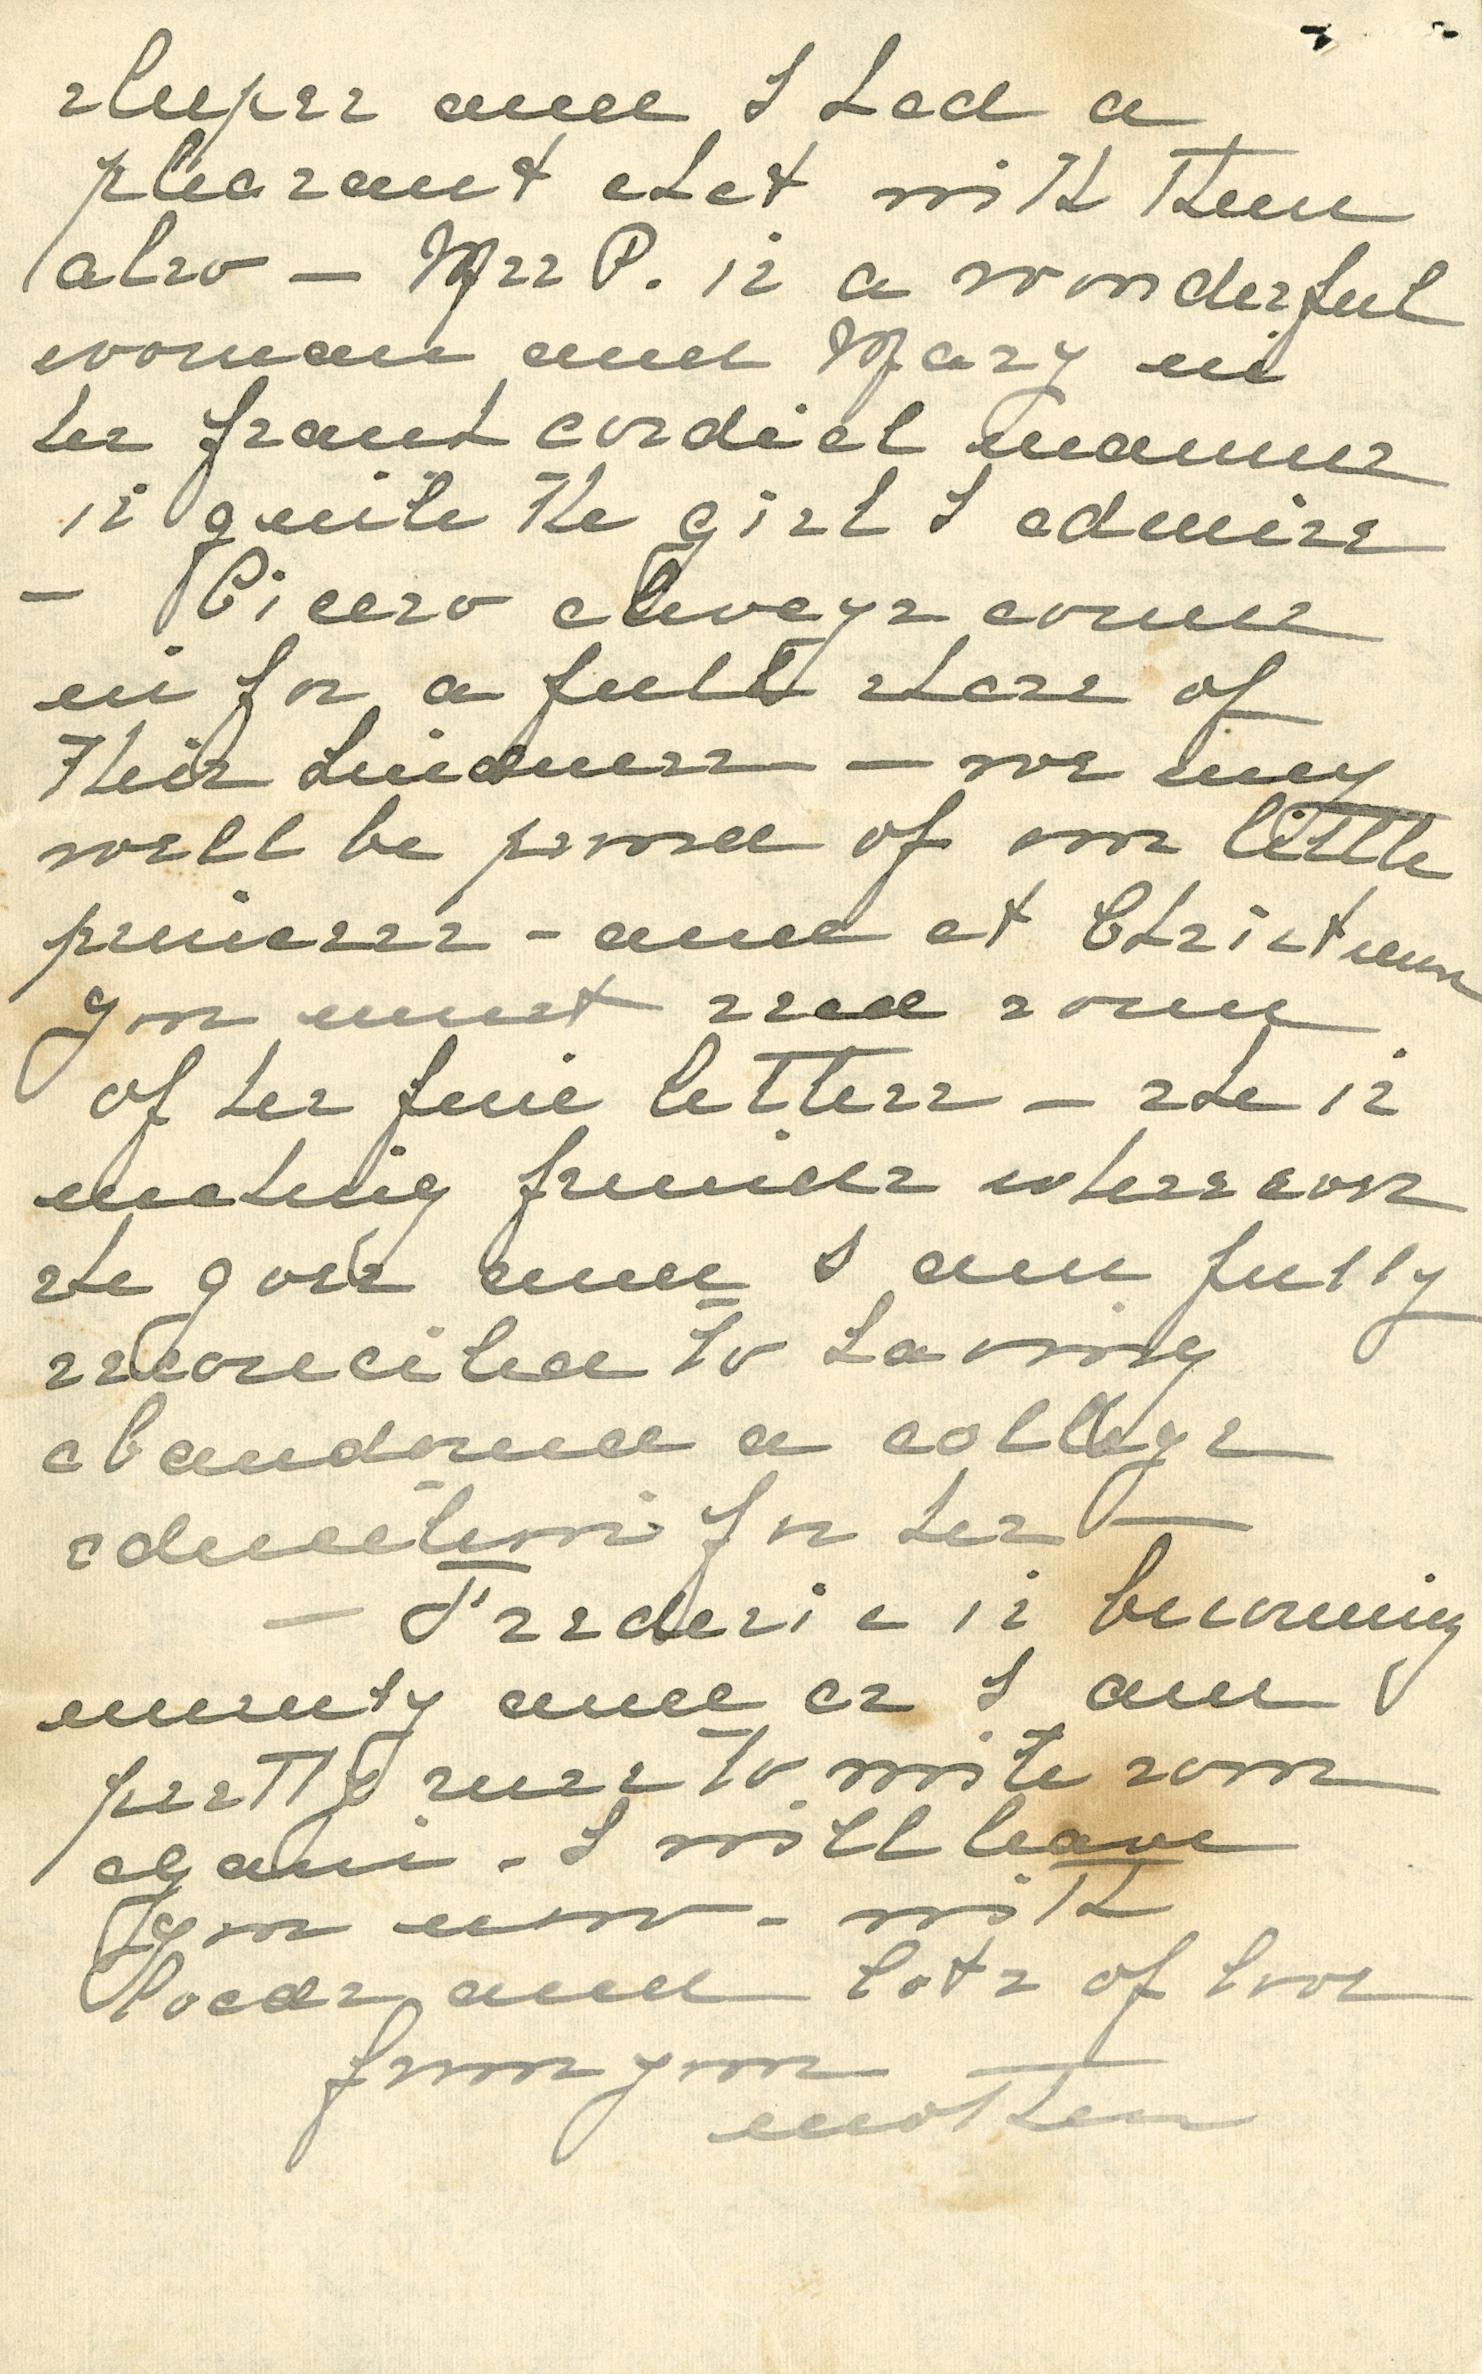 sleeper and I had a
pleasant chat with them
also — Mrs P. is a wonderful
woman and Mary in
her frank cordial manner
is quite the girl I admire
— Cicero always comes
in for a full share of
their kindness — we may
well be proud of our little
princess - and at Christmas
you must read some
of her fine letters — she is
making friends wherever
she goes and I am fully
reconciled to having
abandoned a college
education for her —
— Frederic is becoming
and as I am
pretty sure to write soon
again - I will leave
you now - with
loads and lots of love
from your
mother